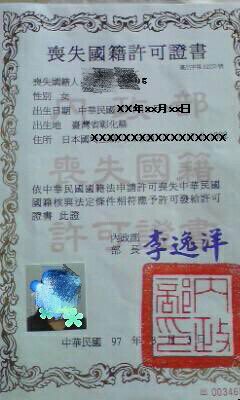 喪失國籍許可證書
喪失國籍人
性別 女
出生日期 中華民國XX年xx月xx日
出生地 臺灣省彰化縣
住所 日本國XXXXXXXXXXXXXXXXX
依中華民國國籍法申請許可喪失中華民國
國籍核與法定條件相符應予許可發給許可
證書 此證
內政部
部長 李逸洋
內政部印
中華民國 97 年 月 日